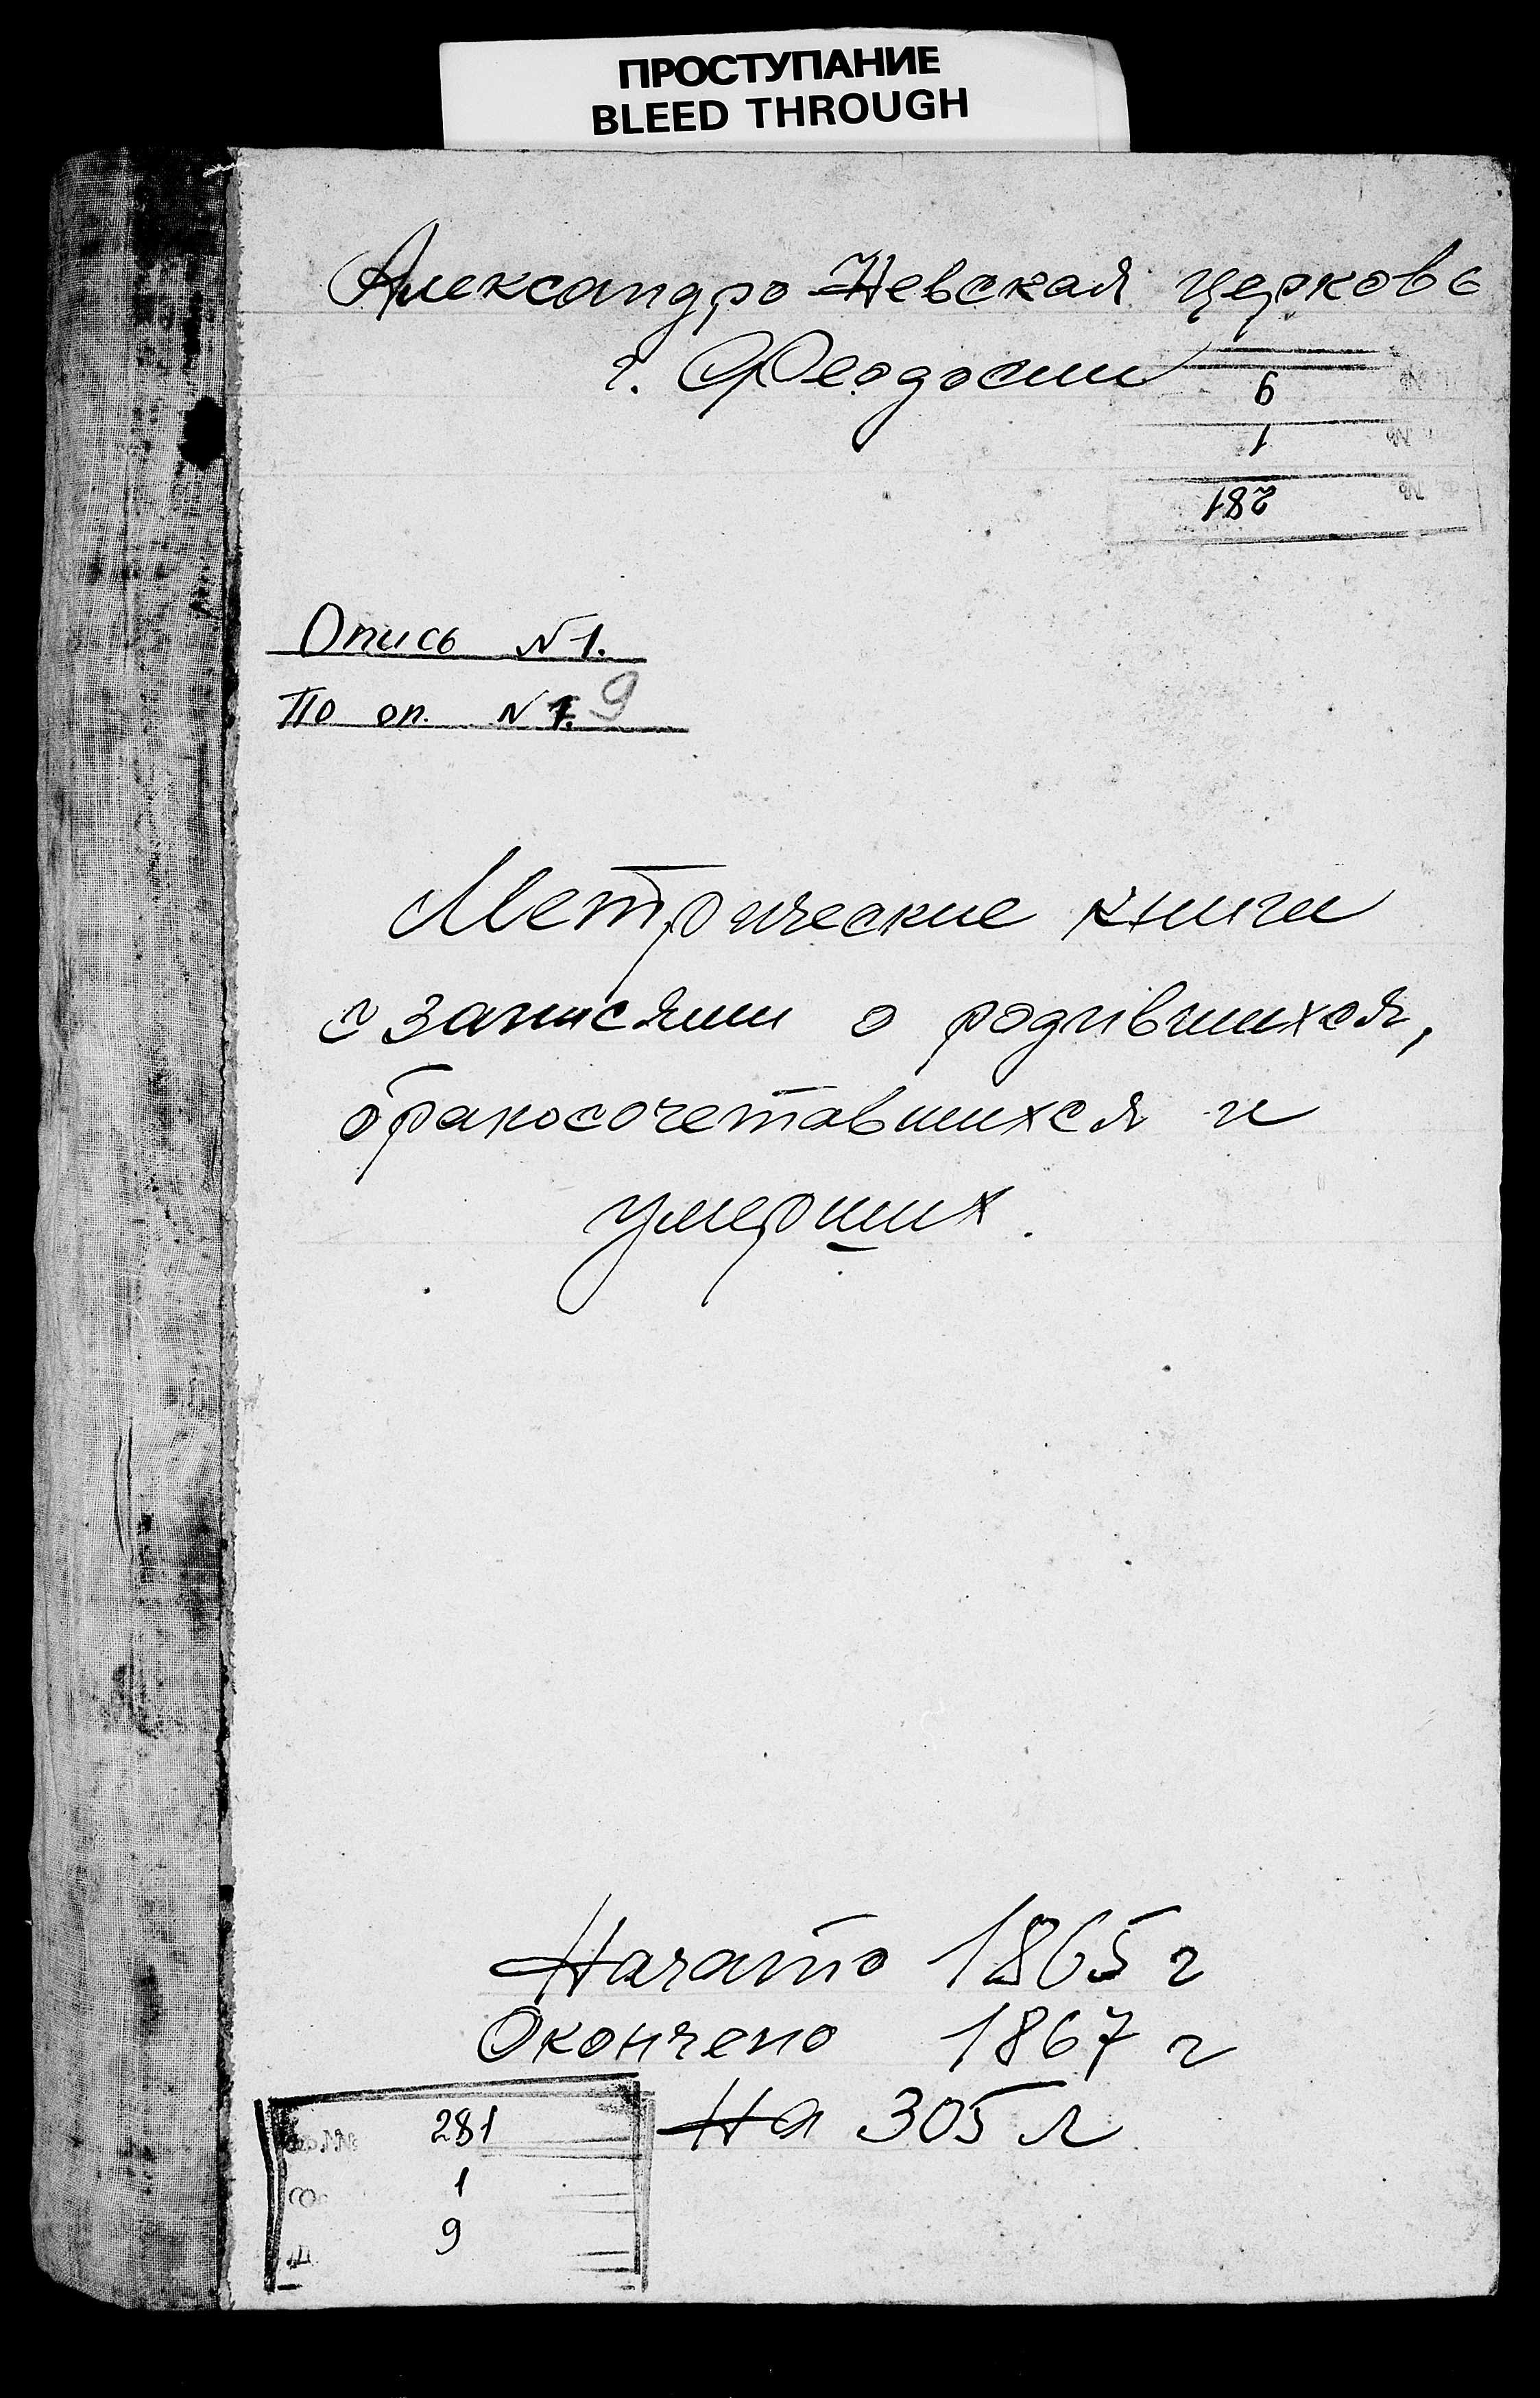 ПРОСТУПАНИЕ
BLEED THROUGH
Александро-Невская церковь
г. Феодосии
9
1
281
Опись №1.
По оп. № 9
Метрические книги
с записями о родившихся,
бракосочетавшихся и
умерших.
Начато 1865 г
Окончено 1867 г
На 305 л
281
1
9